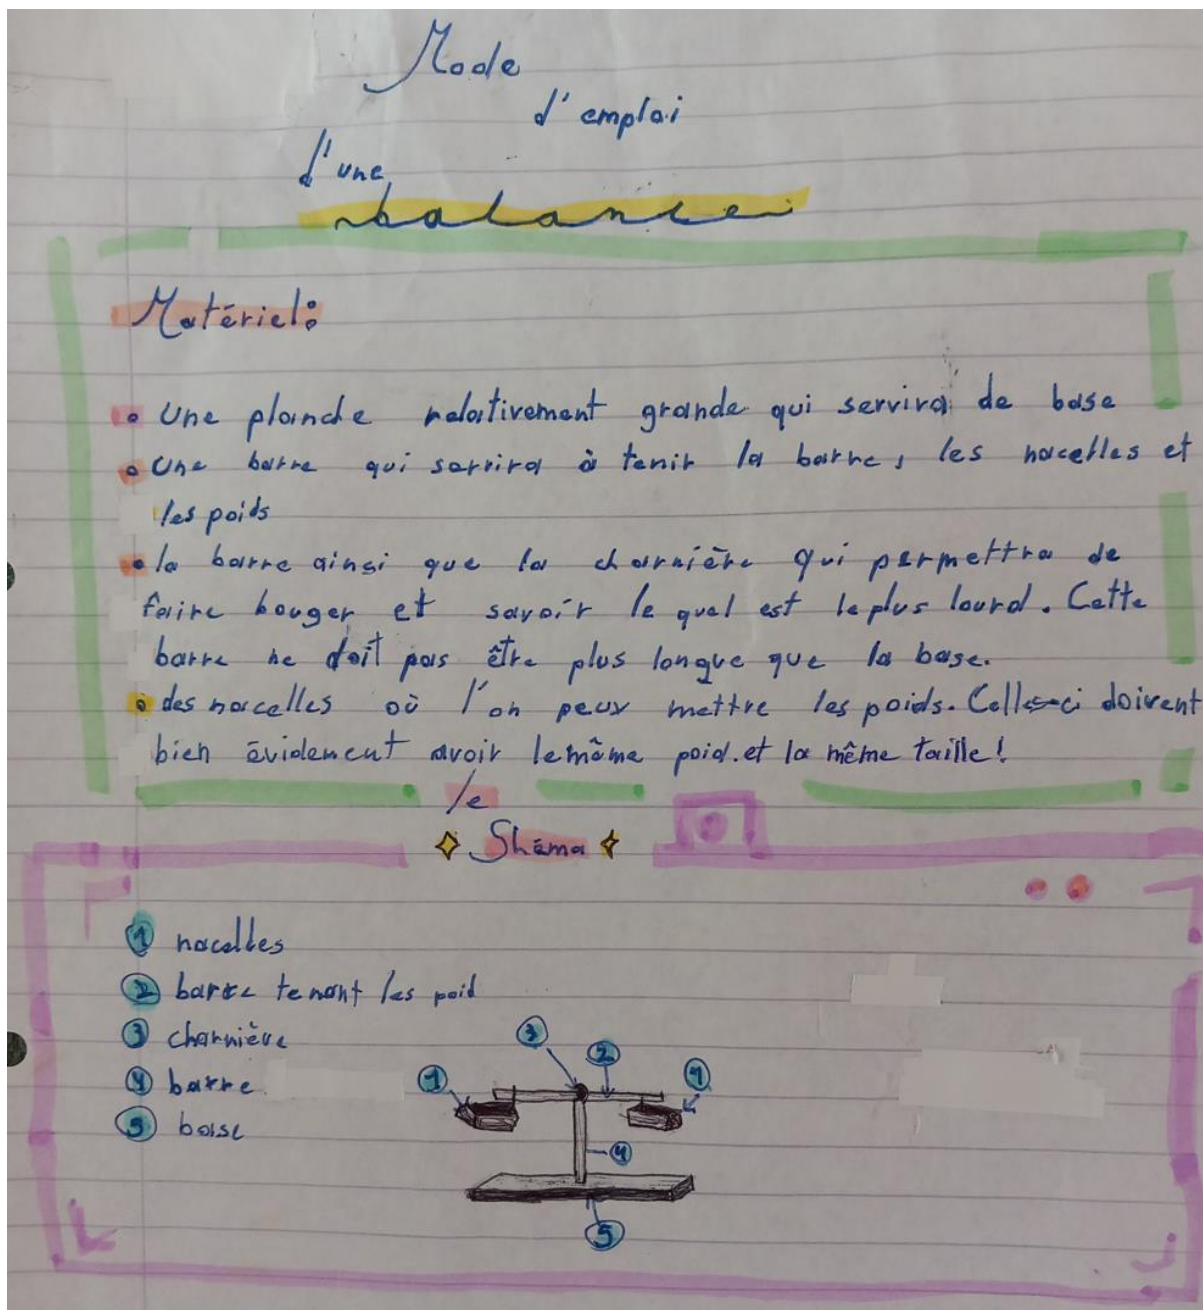 Mode
d'emploi
d'une
balance
Matériel:
• Une planche relativement grande qui servira de base
• Une barre qui servira à tenir la barre, les nacelles et
les poids
• la barre ainsi que la charnière qui permettra de
faire bouger et savoir le quel est le plus lourd. Cette
barre ne doit pas être plus longue que la base.
• des nacelles où l'on peux mettre les poids. Celles-ci doivent
bien évidement avoir le même poid et la même taille!
le
Shéma
1 nacelles
2 barre tenant les poid
3 charnière
4 barre
5 base
3
2
1
1
4
5